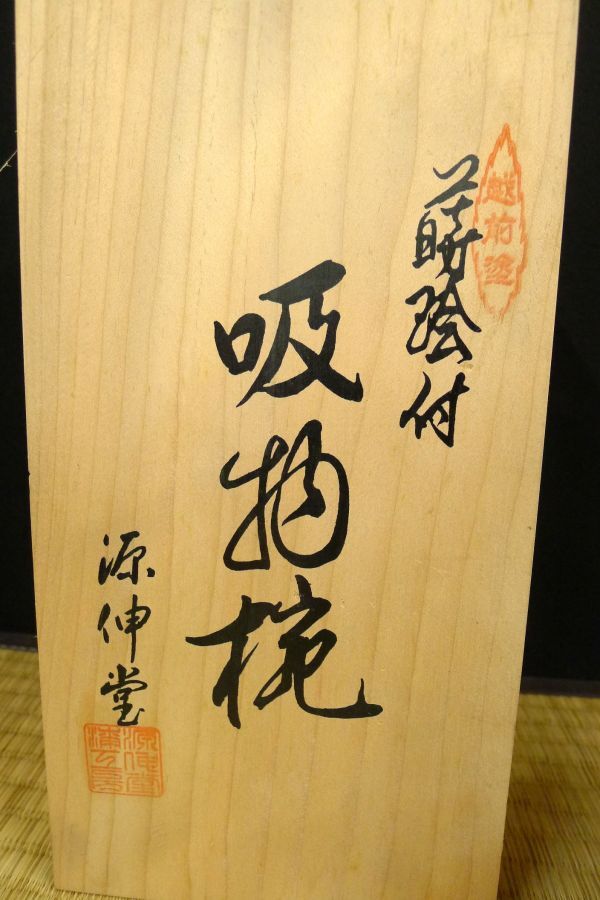 越前塗
蒔絵付
吸物椀
源伸堂